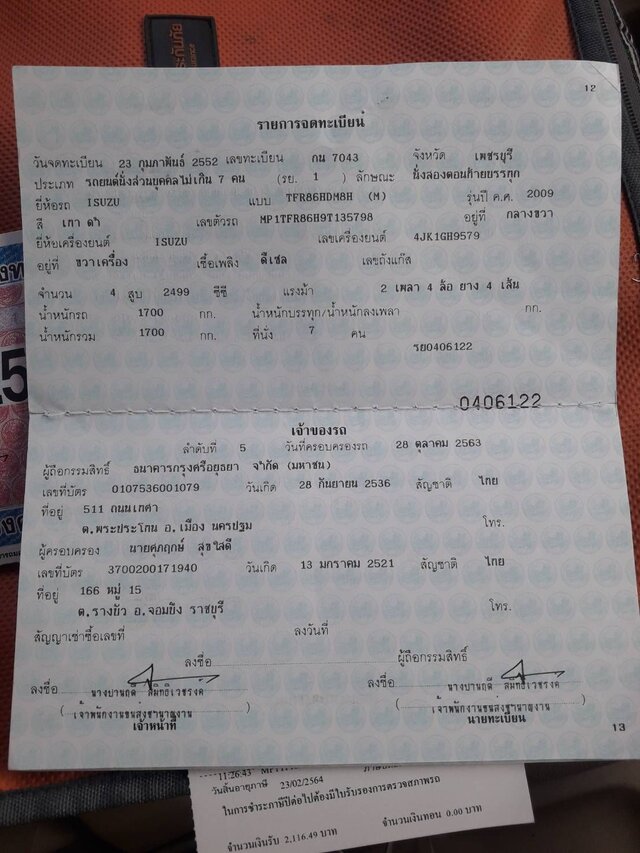 12
รายการจดทะเบียน
วันจดทะเบียน 23 กุมภาพันธ์ 2552 เลขทะเบียน กน 7043 จังหวัด เพชรบุรี
ประเภท รถยนต์นั่งส่วนบุคคลไม่เกิน 7 คน (รย. 1 ) ลักษณะ นั่งสองตอนท้ายบรรทุก
ยี่ห้อรถ ISUZU แบบ TFR86HDM8H (M) รุ่นปี ค.ศ. 2009
สี เทา ดำ เลขตัวรถ MP1TFR86H9T135798 อยู่ที่ กลางขวา
ยี่ห้อเครื่องยนต์ ISUZU เลขเครื่องยนต์ 4JK1GH9579
อยู่ที่ ขวาเครื่อง เชื้อเพลิง ดีเซล เลขถังแก๊ส
จำนวน 4 สูบ 2499 ซีซี แรงม้า 2 เพลา 4 ล้อ ยาง 4 เส้น
น้ำหนักรถ 1700 กก. น้ำหนักบรรทุก/น้ำหนักลงเพลา กก.
น้ำหนักรวม 1700 กก. ที่นั่ง 7 คน
รย0406122
0406122
เจ้าของรถ
ลำดับที่ 5 วันที่ครอบครองรถ 28 ตุลาคม 2563
ผู้ถือกรรมสิทธิ์ ธนาคารกรุงศรีอยุธยา จำกัด (มหาชน)
เลขที่บัตร 0107536001079 วันเกิด 28 กันยายน 2536 สัญชาติ ไทย
ที่อยู่ 511 ถนนเทศา
ต.พระประโทน อ.เมือง นครปฐม โทร.
ผู้ครอบครอง นายศุภฤกษ์ สุขใสดี
เลขที่บัตร 3700200171940 วันเกิด 13 มกราคม 2521 สัญชาติ ไทย
ที่อยู่ 166 หมู่ 15
ต.รางบัว อ.จอมบึง ราชบุรี โทร.
สัญญาเช่าซื้อเลขที่ ลงวันที่
ลงชื่อ ผู้ถือกรรมสิทธิ์
ลงชื่อ ลงชื่อ
เจ้าพนักงานขนส่งชำนาญงาน เจ้าพนักงานขนส่งชำนาญงาน
เจ้าหน้าที่ นายทะเบียน
13
11:26:43
วันสิ้นอายุภาษี 23/02/2564
ในการชำระภาษีปีต่อไปต้องมีใบรับรองการตรวจสภาพรถ
จำนวนเงินรับ 2,116.49 บาท จำนวนเงินทอน 0.00 บาท